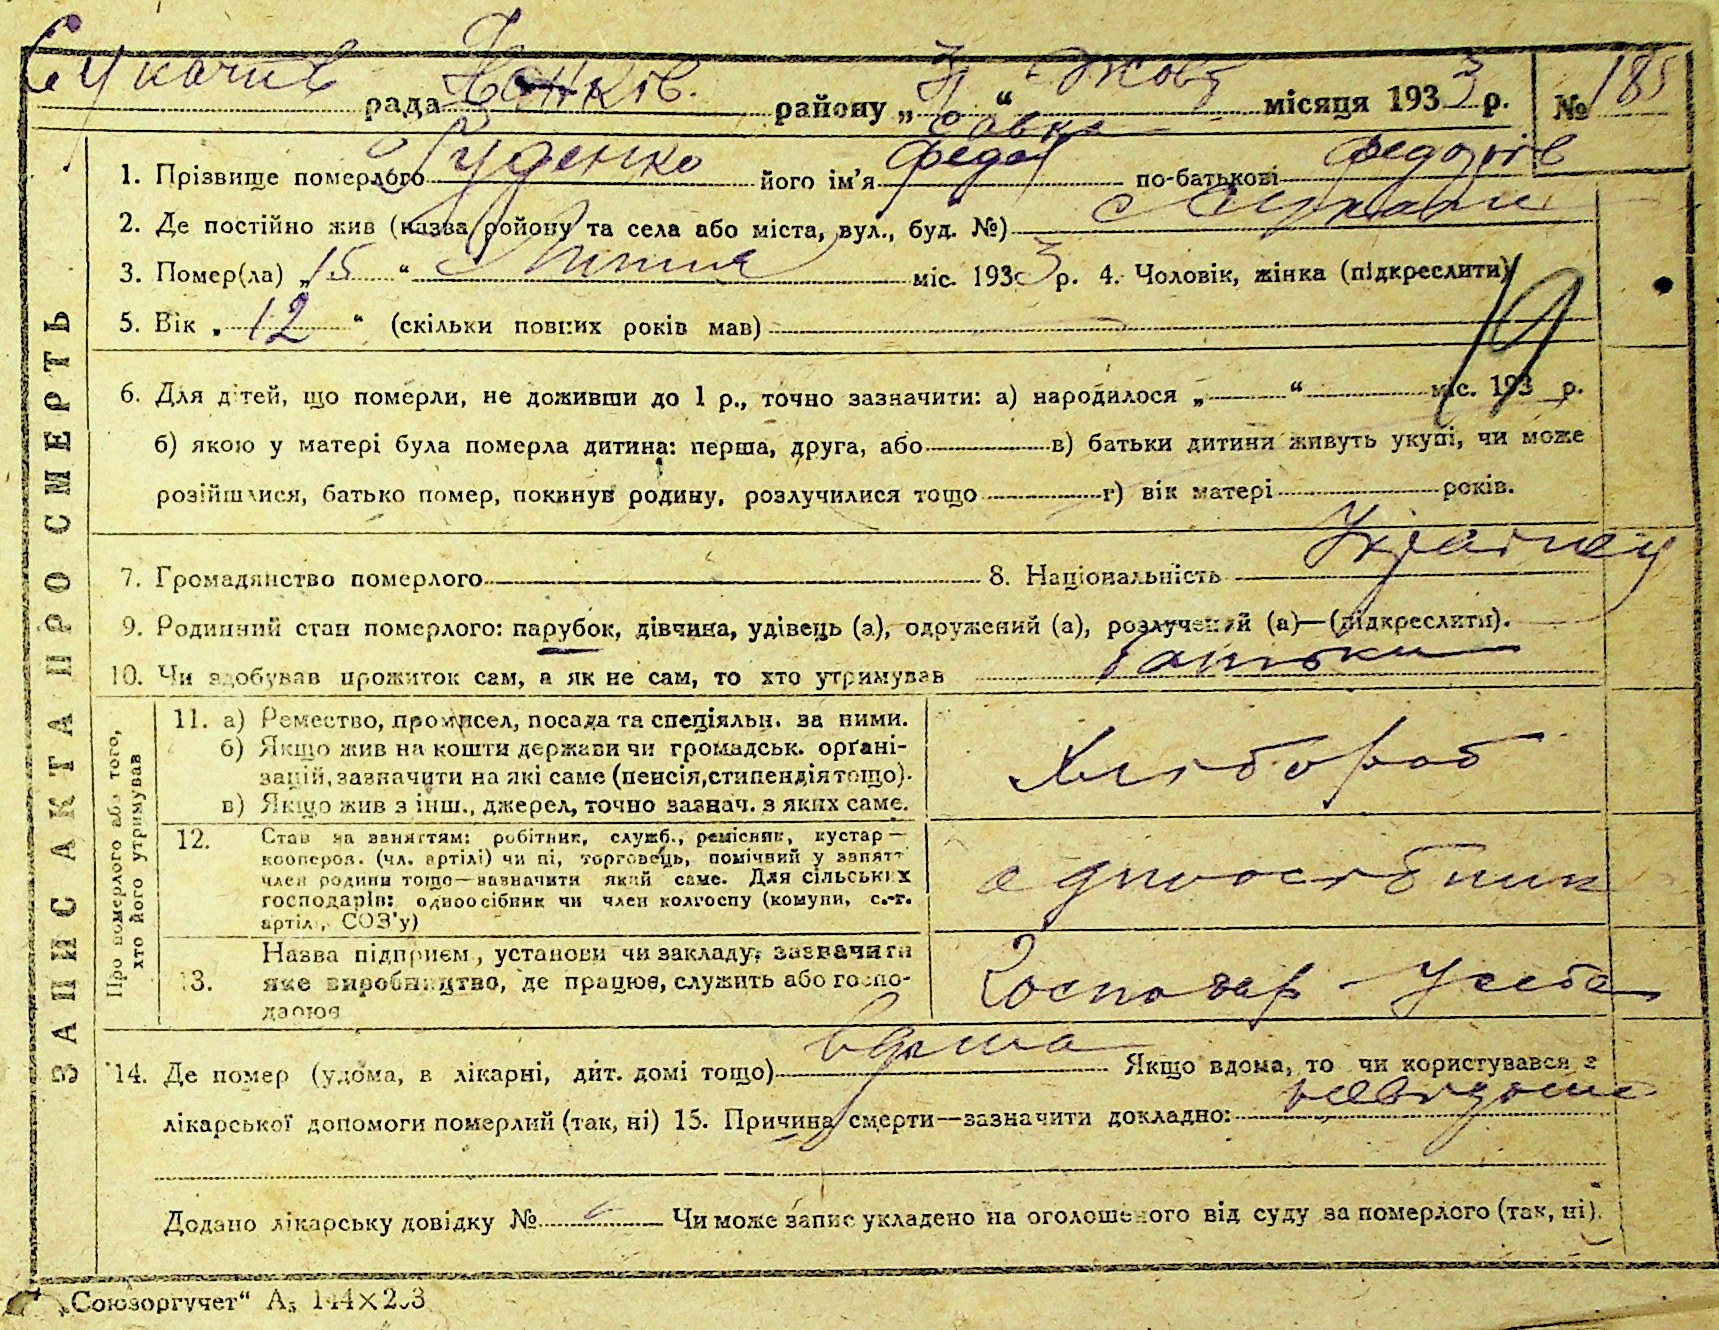 Сукачів рада Іванків. району „7“ Жовт місяця 1933 р. № 185
Савка
1. Прізвище померлого Руденко його ім'я Федор по-батькові Федорів
2. Де постійно жив (назва ройону та села або міста, вул., буд. №) с Сукачі
3. Помер(ла) „15“ Липня міс. 1933 р. 4. Чоловік, жінка (підкреслити)
5. Вік „12“ (скільки повних років мав)
19
6. Для дітей, що померли, не доживши до 1 р., точно зазначити: а) народилося „ “ міс. 193 р.
б) якою у матері була померла дитина: перша, друга, або в) батьки дитини живуть укупі, чи може
розійшлися, батько помер, покинув родину, розлучилися тощо г) вік матері років.
7. Громадянство померлого 8. Національність Українец
9. Родинний стан померлого: парубок, дівчина, удівець (а), одружений (а), розлучений (а)—(підкреслити).
10. Чи здобував прожиток сам, а як не сам, то хто утримував батьки
ЗАПИС АКТА ПРО СМЕРТЬ
Про померлого або того,
хто його утримував
11. а) Ремество, промисел, посада та спеціяльн. за ними.
б) Якщо жив на кошти держави чи громадськ. орґані-
зацій, зазначити на які саме (пенсія, стипендія тощо).
в) Якщо жив з інш., джерел, точно зазнач. з яких саме.
Хлібороб
12. Став за заняттям: робітник, служб., ремісник, кустар —
коопероз. (чл. артілі) чи ні, торговець, помічний у занятт
член родини тощо—зазначити який саме. Для сільських
господарів: одноосібник чи член колгоспу (комуни, с.-г.
артілі, СОЗ'у)
одноосібник
13. Назва підприєм., установи чи закладу, зазначити
яке виробництво, де працює, служить або госпо-
дарює
Господар - усебе
14. Де помер (удома, в лікарні, дит. домі тощо) вдома Якщо вдома, то чи користувався з
лікарської допомоги померлий (так, ні) 15. Причина смерти—зазначити докладно: невідома
Додано лікарську довідку № Чи може запис укладено на оголошеного від суду за померлого (так, ні).
„Союзоргучет“ А₅ 144×203